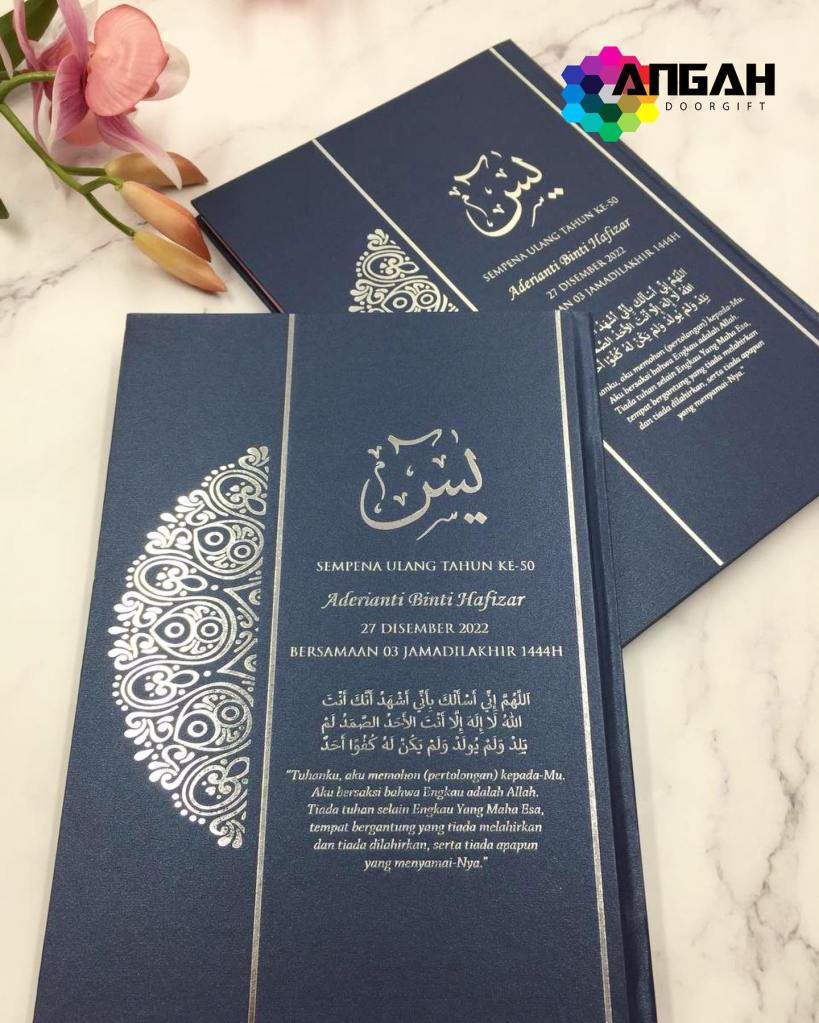 ANGAH
DOORGIFT
يس
SEMPENA ULANG TAHUN KE-50
Aderianti Binti Hafizar
27 DISEMBER 2022
AN 03 JAMADILAKHIR 1444H
اَللّٰهُمَّ إِنِّي أَسْأَلُكَ بِأَنِّي أَشْهَدُ
اللهُ لَا إِلَهَ إِلَّا أَنْتَ الْأَحَدُ
يَلِدْ وَلَمْ يُولَدْ وَلَمْ يَكُنْ لَهُ كُفُوًا أَحَدٌ
aku memohon (pertalongan) kepada-Mu.
Aku bersaksi bahwa Engkau adalah Allah.
Tiada tuhan selain Engkau Yang Maha Esa,
tempat bergantung yang tiada melahirkan
dan tiada dilahirkan, serta tiada apapun
yang menyamai-Nya."
يس
SEMPENA ULANG TAHUN KE-50
Aderianti Binti Hafizar
27 DISEMBER 2022
BERSAMAAN 03 JAMADILAKHIR 1444H
اَللّٰهُمَّ إِنِّي أَسْأَلُكَ بِأَنِّي أَشْهَدُ أَنَّكَ أَنْتَ
اللهُ لَا إِلَهَ إِلَّا أَنْتَ الأَحَدُ الصَّمَدُ لَمْ
يَلِدْ وَلَمْ يُولَدْ وَلَمْ يَكُنْ لَهُ كُفُوًا أَحَدٌ
"Tuhanku, aku memohon (pertalongan) kepada-Mu.
Aku bersaksi bahwa Engkau adalah Allah.
Tiada tuhan selain Engkau Yang Maha Esa,
tempat bergantung yang tiada melahirkan
dan tiada dilahirkan, serta tiada apapun
yang menyamai-Nya."